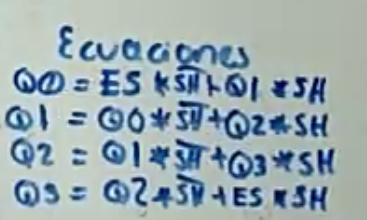 Ecuaciones
Q0 = ES * S̅H̅ + Q1 * SH
Q1 = Q0 * S̅H̅ + Q2 * SH
Q2 = Q1 * S̅H̅ + Q3 * SH
Q3 = Q2 * S̅H̅ + ES * SH